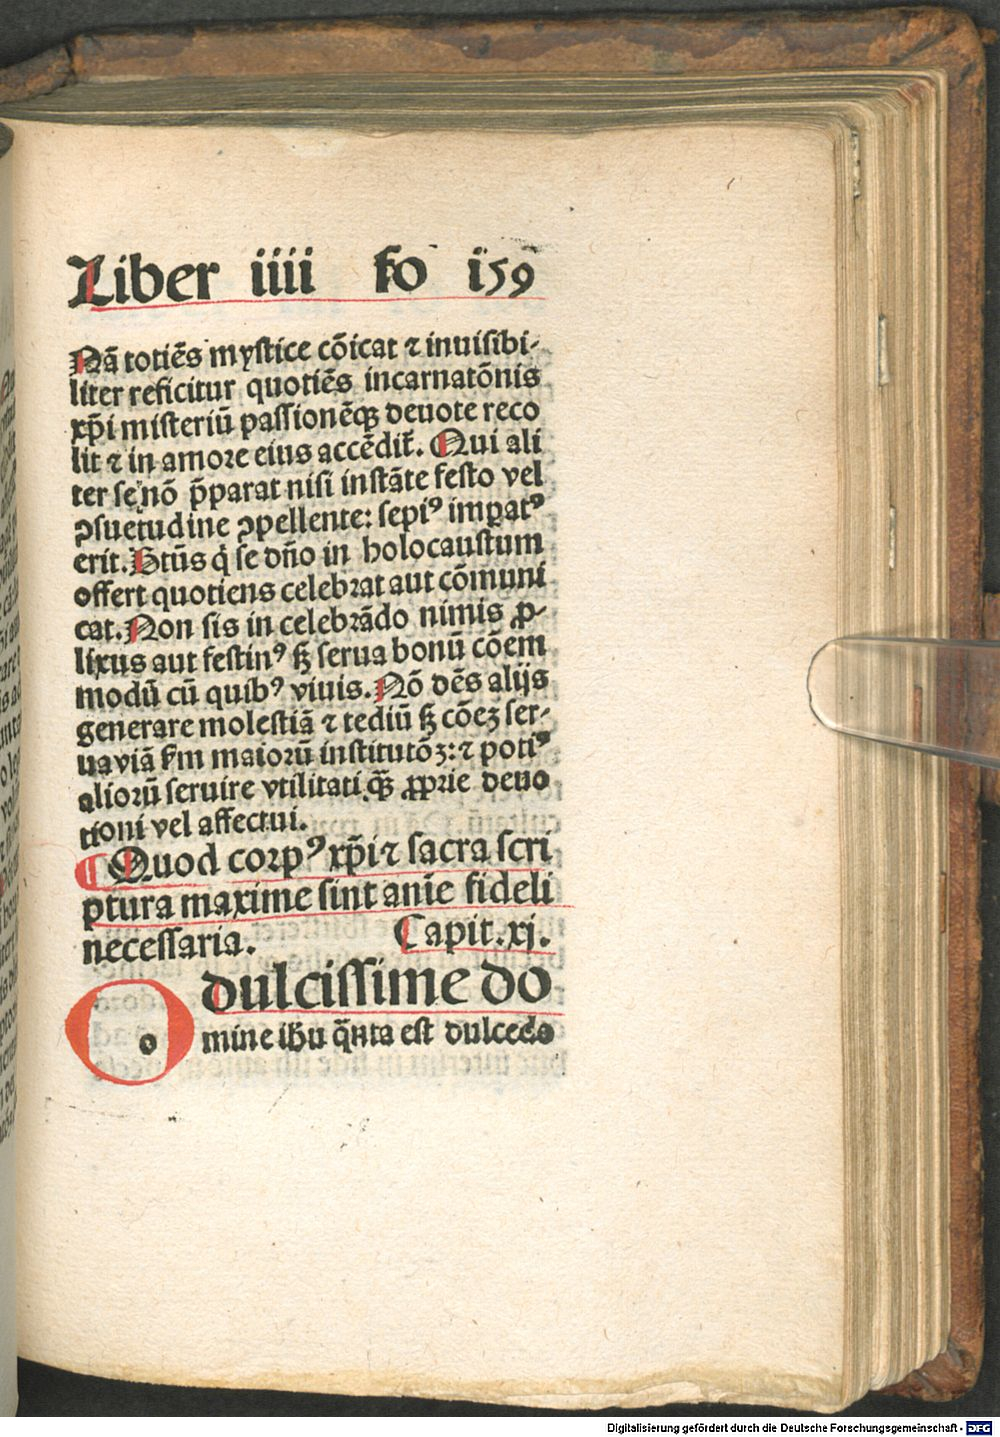 Liber iiii fo i59
Nā totiēs mystice cōicat ⁊ inuisibi-
liter reficitur quotiēs incarnatōnis
xp̄i misteriū passionēqȝ deuote reco
lit ⁊ in amore eius accēdit᷑. Qui ali
ter se nō p̄parat nisi instāte festo vel
ꝯsuetudine ꝯpellente: sepiꝰ imꝑatꝰ
erit. Btūs q̇ se dño in holocaustum
offert quotiens celebrat aut cōmuni
cat. Non sis in celebrādo nimis ꝓ-
lixus aut festinꝰ sꝫ serua bonū cōem
modū cū quibꝰ viuis. Nō dēs alijs
generare molestiā ⁊ tediū sꝫ cōeꝫ ser-
ua viā ẜm maiorū institutōꝫ: ⁊ potiꝰ
aliorū seruire vtilitati q̄ꝫ ꝓprie deuo
tioni vel affectui.
¶ Quod corpꝰ xp̄i ⁊ sacra scri
ptura maxime sint anīe fideli
necessaria. Capit. xj.
O o dulcissime do
mine ihu q̄nta est dulcedo
Digitalisierung gefördert durch die Deutsche Forschungsgemeinschaft - DFG